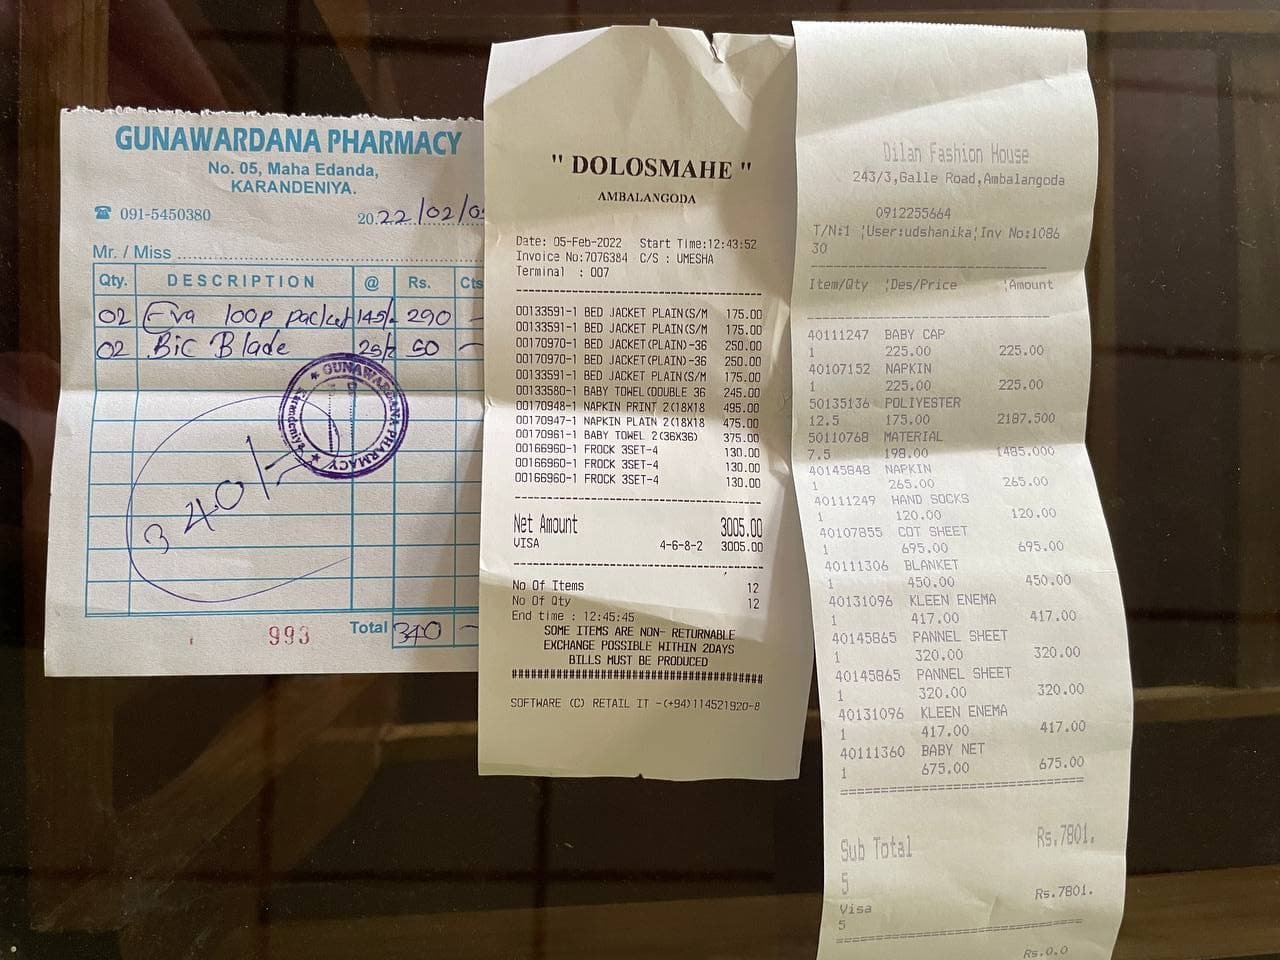 GUNAWARDANA PHARMACY
No. 05, Maha Edanda,
KARANDENIYA.
☎ 091-5450380 20.22/02/05
Mr. / Miss
Qty. DESCRIPTION @ Rs. Cts
02 Eva loop packet 145/- 290 -
02 Bic Blade 25/- 50 -
GUNAWARDANA PHARMACY
Karandeniya
340/=
993 Total 340 -
" DOLOSMAHE "
AMBALANGODA
Date: 05-Feb-2022 Start Time:12:43:52
Invoice No:7076384 C/S : UMESHA
Terminal : 007
00133591-1 BED JACKET PLAIN(S/M 175.00
00133591-1 BED JACKET PLAIN(S/M 175.00
00170970-1 BED JACKET(PLAIN)-36 250.00
00170970-1 BED JACKET(PLAIN)-36 250.00
00133591-1 BED JACKET PLAIN(S/M 175.00
00133580-1 BABY TOWEL(DOUBLE 36 245.00
00170948-1 NAPKIN PRINT 2(18X18 495.00
00170947-1 NAPKIN PLAIN 2(18X18 475.00
00170961-1 BABY TOWEL 2(36X36) 375.00
00166960-1 FROCK 3SET-4 130.00
00166960-1 FROCK 3SET-4 130.00
00166960-1 FROCK 3SET-4 130.00
Net Amount 3005.00
VISA 4-6-8-2 3005.00
No Of Items 12
No Of Qty 12
End time : 12:45:45
SOME ITEMS ARE NON- RETURNABLE
EXCHANGE POSSIBLE WITHIN 2DAYS
BILLS MUST BE PRODUCED
SOFTWARE (C) RETAIL IT -(+94)114521920-8
Dilan Fashion House
243/3,Galle Road,Ambalangoda
0912255664
T/N:1 ¦User:udshanika¦Inv No:1086
30
Item/Qty ¦Des/Price ¦Amount
40111247 BABY CAP
1 225.00 225.00
40107152 NAPKIN
1 225.00 225.00
50135136 POLIYESTER
12.5 175.00 2187.500
50110768 MATERIAL
7.5 198.00 1485.000
40145848 NAPKIN
1 265.00 265.00
40111249 HAND SOCKS
1 120.00 120.00
40107855 COT SHEET
1 695.00 695.00
40111306 BLANKET
1 450.00 450.00
40131096 KLEEN ENEMA
1 417.00 417.00
40145865 PANNEL SHEET
1 320.00 320.00
40145865 PANNEL SHEET
1 320.00 320.00
40131096 KLEEN ENEMA
1 417.00 417.00
40111360 BABY NET
1 675.00 675.00
Sub Total Rs.7801.
5
Visa Rs.7801.
5
Rs.0.0